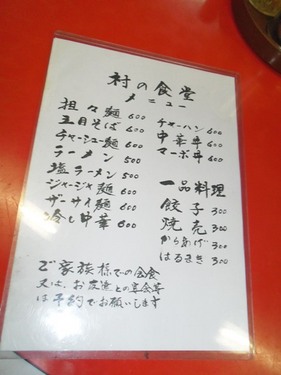 村の食堂
メニュー
担々麺 600
五目そば 600
チャーシュー麺 600
ラーメン 500
塩ラーメン 500
ジャージャ麺 600
ザーサイ麺 600
冷し中華 600
チャーハン 600
中華丼 600
マーボ丼 600
一品料理
餃子 300
焼売 300
からあげ 300
はるまき 300
ご家族様での会食
又は、お友達との宴会等
は予約でお願いします